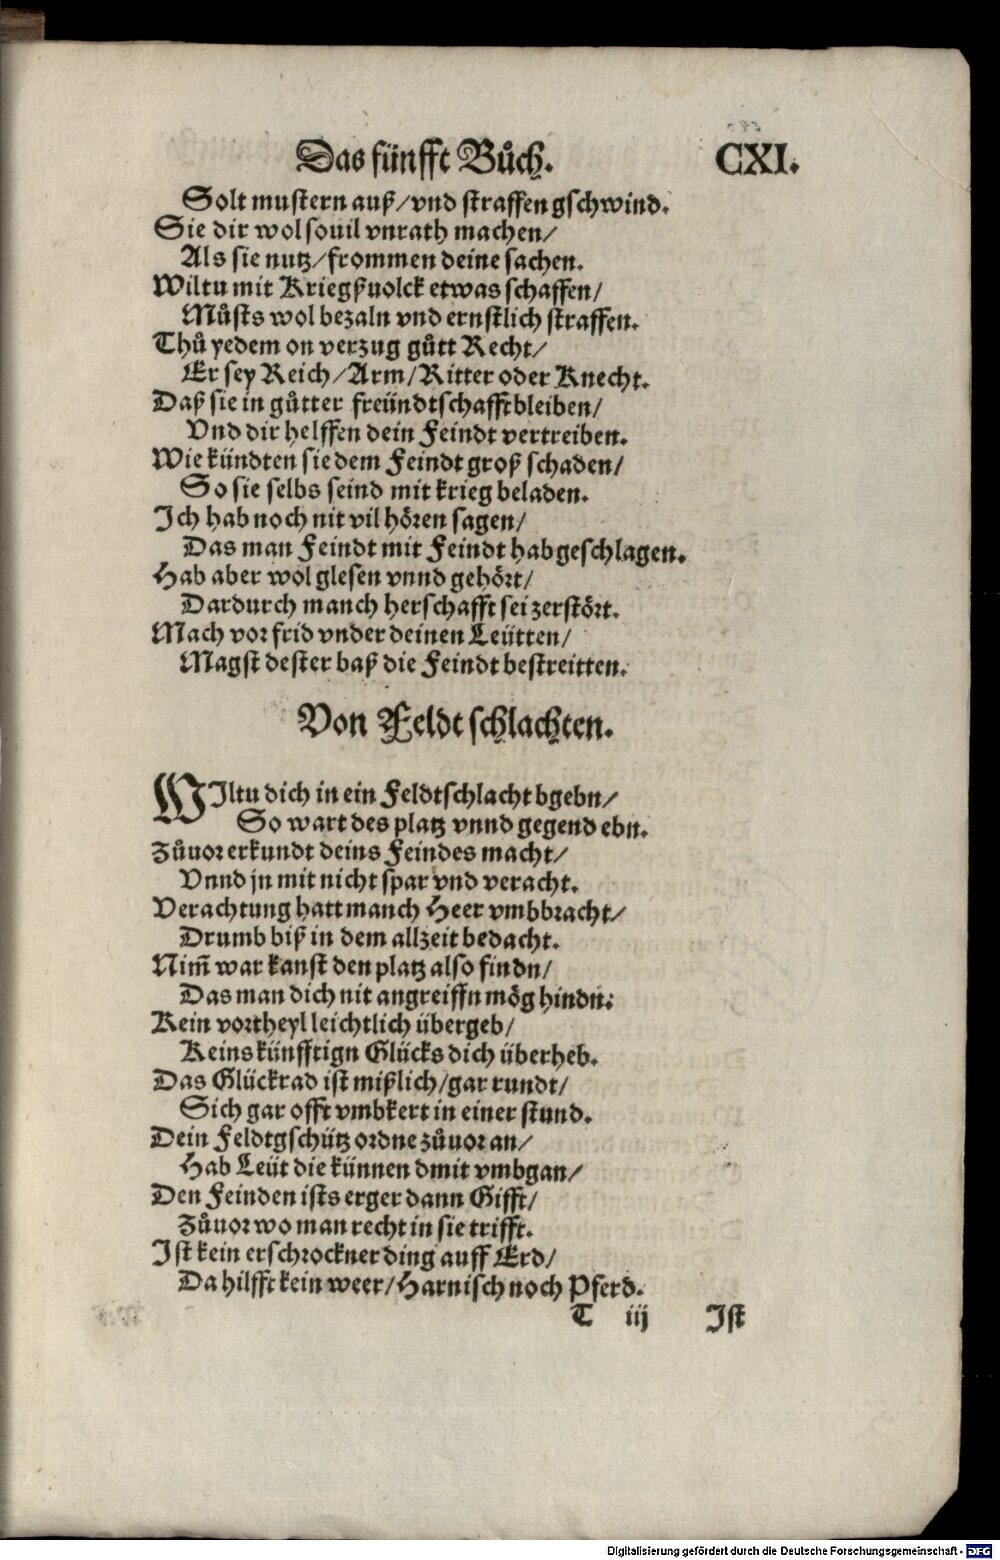 Das fünfft Bůch. CXI.
Solt mustern auß/vnd straffen gschwind.
Sie dir wol souil vnrath machen/
Als sie nutz/frommen deine sachen.
Wiltu mit Kriegßuolck etwas schaffen/
Můsts wol bezaln vnd ernstlich straffen.
Thů yedem on verzug gůtt Recht/
Er sey Reich/Arm/Ritter oder Knecht.
Daß sie in gůtter freündtschafft bleiben/
Vnd dir helffen dein Feindt vertreiben.
Wie kündten sie dem Feindt groß schaden/
So sie selbs seind mit krieg beladen.
Ich hab noch nit vil hören sagen/
Das man Feindt mit Feindt hab geschlagen.
Hab aber wol glesen vnnd gehört/
Dardurch manch herschafft sei zerstört.
Mach vor frid vnder deinen Leütten/
Magst dester baß die Feindt bestreitten.
Von Feldtschlachten.
WIltu dich in ein Feldtschlacht bgebn/
So wart des platz vnnd gegend ebn.
Zůuor erkundt deins Feindes macht/
Vnnd jn mit nicht spar vnd veracht.
Verachtung hatt manch Heer vmbbracht/
Drumb biß in dem allzeit bedacht.
Nim̃ war kanst den platz also findn/
Das man dich nit angreiffn mög hindn.
Kein vortheyl leichtlich übergeb/
Keins künfftign Glücks dich überheb.
Das Glückrad ist mißlich/gar rundt/
Sich gar offt vmbkert in einer stund.
Dein Feldtgschütz ordne zůuor an/
Hab Leüt die künnen dmit vmbgan/
Den Feinden ists erger dann Gifft/
Zůuor wo man recht in sie trifft.
Ist kein erschrockner ding auff Erd/
Da hilfft kein weer/Harnisch noch Pferd.
T iij Ist
Digitalisierung gefördert durch die Deutsche Forschungsgemeinschaft - DFG